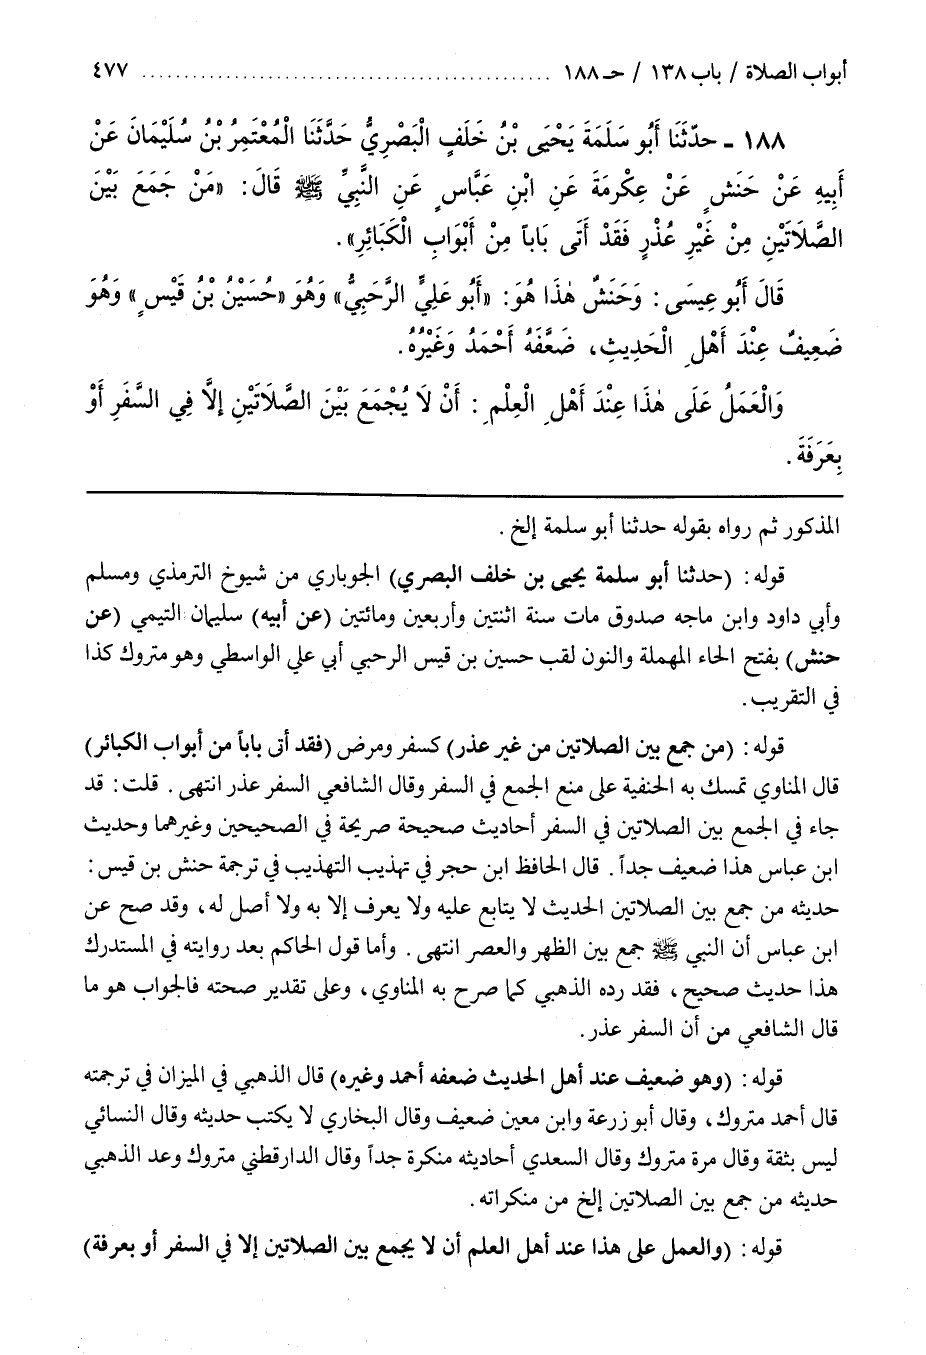 أبواب الصلاة / باب ١٣٨ / حـ ١٨٨ ................................................ ٤٧٧
١٨٨ - حدّثَنَا أَبُو سَلَمَةَ يَحْيَى بْنُ خَلَفٍ الْبَصْرِيُّ حَدَّثَنَا الْمُعْتَمِرُ بْنُ سُلَيْمَانَ عَنْ
أَبِيهِ عَنْ حَنَشٍ عَنْ عِكْرِمَةَ عَنِ ابْنِ عَبَّاسٍ عَنِ النَّبِيِّ ﷺ قَالَ: «مَنْ جَمَعَ بَيْنَ
الصَّلَاتَيْنِ مِنْ غَيْرِ عُذْرٍ فَقَدْ أَتَى بَاباً مِنْ أَبْوَابِ الْكَبَائِرِ».
قَالَ أَبُو عِيسَى: وَحَنَشٌ هٰذَا هُوَ: «أَبُو عَلِيٍّ الرَّحَبِيُّ» وَهُوَ «حُسَيْنُ بْنُ قَيْسٍ» وَهُوَ
ضَعِيفٌ عِنْدَ أَهْلِ الْحَدِيثِ، ضَعَّفَهُ أَحْمَدُ وَغَيْرُهُ.
وَالْعَمَلُ عَلَى هٰذَا عِنْدَ أَهْلِ الْعِلْمِ: أَنْ لَا يُجْمَعَ بَيْنَ الصَّلَاتَيْنِ إِلَّا فِي السَّفَرِ أَوْ
بِعَرَفَةَ.
المذكور ثم رواه بقوله حدثنا أبو سلمة إلخ.
قوله: (حدثنا أبو سلمة يحيى بن خلف البصري) الجوباري من شيوخ الترمذي ومسلم
وأبي داود وابن ماجه صدوق مات سنة اثنتين وأربعين ومائتين (عن أبيه) سليمان التيمي (عن
حنش) بفتح الحاء المهملة والنون لقب حسين بن قيس الرحبي أبي علي الواسطي وهو متروك كذا
في التقريب.
قوله: (من جمع بين الصلاتين من غير عذر) كسفر ومرض (فقد أتى باباً من أبواب الكبائر)
قال المناوي تمسك به الحنفية على منع الجمع في السفر وقال الشافعي السفر عذر انتهى. قلت: قد
جاء في الجمع بين الصلاتين في السفر أحاديث صحيحة صريحة في الصحيحين وغيرهما وحديث
ابن عباس هذا ضعيف جداً. قال الحافظ ابن حجر في تهذيب التهذيب في ترجمة حنش بن قيس:
حديثه من جمع بين الصلاتين الحديث لا يتابع عليه ولا يعرف إلا به ولا أصل له، وقد صح عن
ابن عباس أن النبي ﷺ جمع بين الظهر والعصر انتهى. وأما قول الحاكم بعد روايته في المستدرك
هذا حديث صحيح، فقد رده الذهبي كما صرح به المناوي، وعلى تقدير صحته فالجواب هو ما
قال الشافعي من أن السفر عذر.
قوله: (وهو ضعيف عند أهل الحديث ضعفه أحمد وغيره) قال الذهبي في الميزان في ترجمته
قال أحمد متروك، وقال أبو زرعة وابن معين ضعيف وقال البخاري لا يكتب حديثه وقال النسائي
ليس بثقة وقال مرة متروك وقال السعدي أحاديثه منكرة جداً وقال الدارقطني متروك وعد الذهبي
حديثه من جمع بين الصلاتين إلخ من منكراته.
قوله: (والعمل على هذا عند أهل العلم أن لا يجمع بين الصلاتين إلا في السفر أو بعرفة)